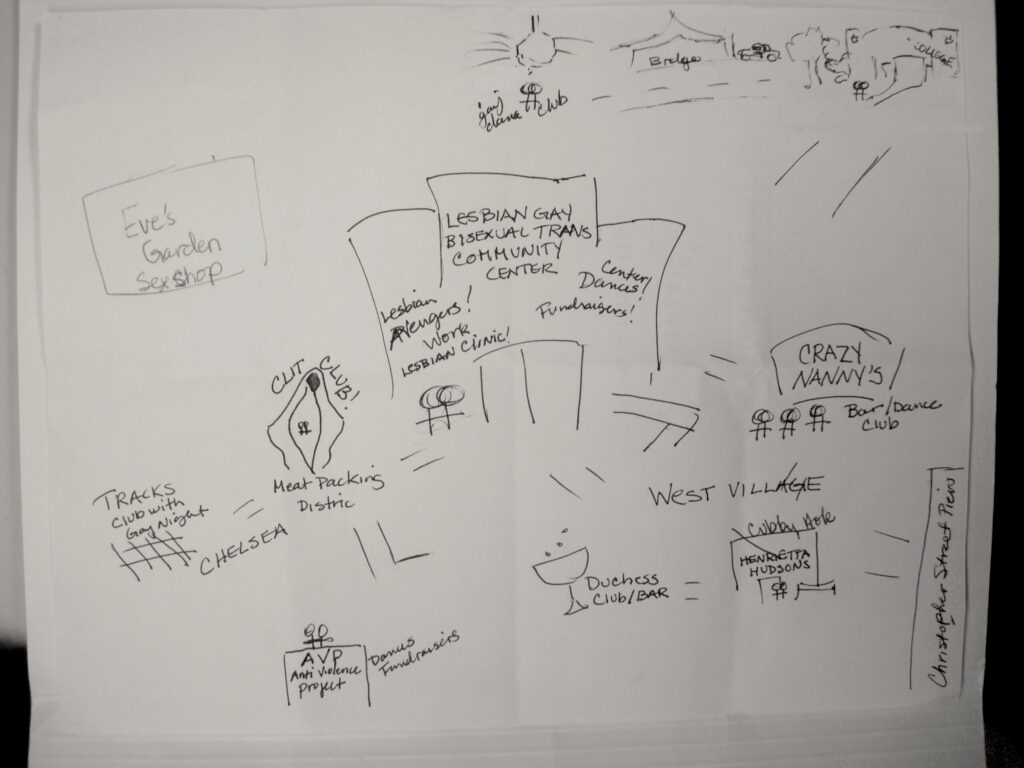 gay
dance club
Bridge
COLLEGE
Eve's
Garden
Sexshop
LESBIAN GAY
BISEXUAL TRANS
COMMUNITY
CENTER
Lesbian
Avengers!
Work
LESBIAN CLINIC!
Center
Dances!
Fundraisers!
CLIT CLUB!
Meat Packing
Distric
CRAZY
NANNY'S
Bar/Dance
Club
TRACKS
Club with
Gay Night
CHELSEA
WEST VILLAGE
Cubby Hole
HENRIETTA
HUDSONS
Duchess
Club/BAR
Christopher Street Piers
AVP
Anti Violence
Project
Dances
Fundraisers